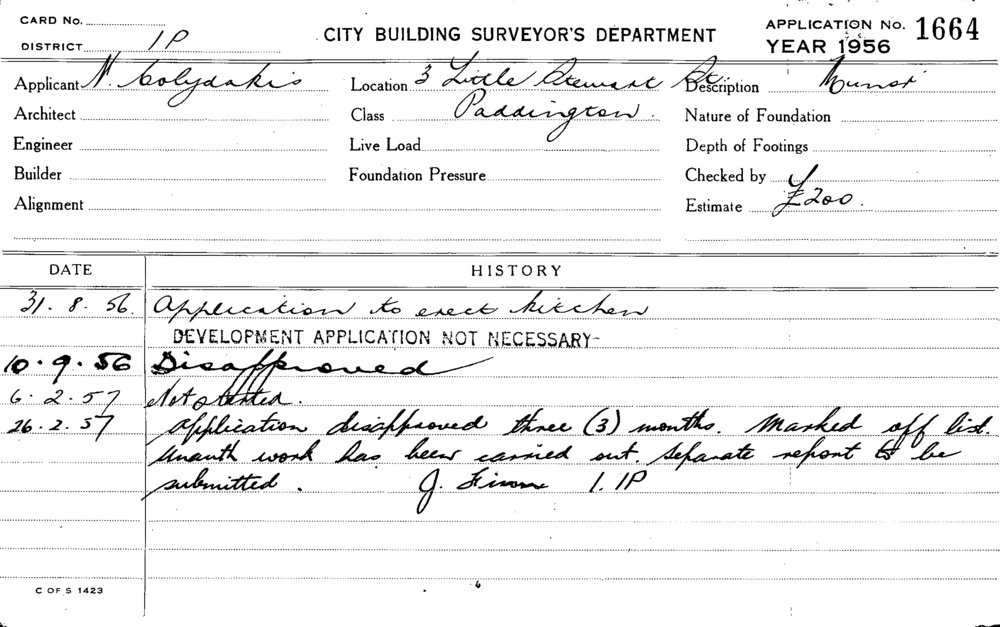 CARD No.
DISTRICT 1P
CITY BUILDING SURVEYOR'S DEPARTMENT
APPLICATION No. 1664
YEAR 1956
Applicant N. Colydakis Location 3 Little Stewart St. Description Minor
Architect Class Paddington. Nature of Foundation
Engineer Live Load Depth of Footings
Builder Foundation Pressure Checked by
Alignment Estimate £200.
DATE HISTORY
31. 8. 56. Application to erect kitchen
DEVELOPMENT APPLICATION NOT NECESSARY
10. 9. 56 Disapproved
6. 2. 57 Not started.
26. 2. 57 Application disapproved three (3) months. Marked off list.
Unauth work has been carried out. Separate report to be
submitted. J. 1. 1P
C OF S 1423